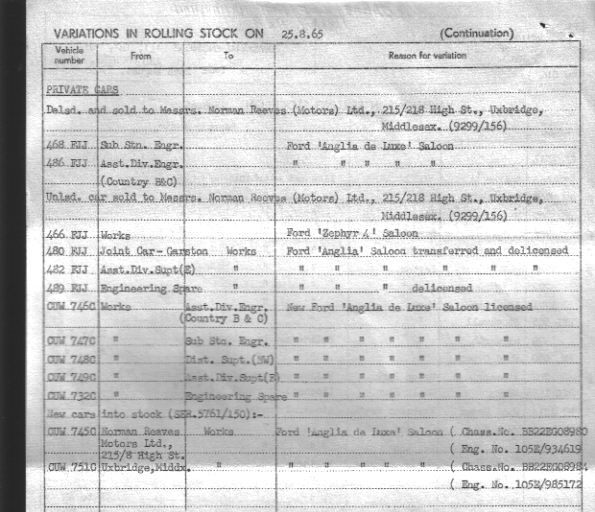 VARIATIONS IN ROLLING STOCK ON 25.8.65 (Continuation)
Vehicle number From To Reason for variation
PRIVATE CARS
Delsd. and sold to Messrs. Norman Reeves (Motors) Ltd., 215/218 High St., Uxbridge,
Middlesex. (9299/156)
468 FJJ Sub Stn. Engr. Ford 'Anglia de Luxe' Saloon
486 FJJ Asst.Div.Engr. " " " " "
(Country B&C)
Unlsd. car sold to Messrs. Norman Reeves (Motors) Ltd., 215/218 High St., Uxbridge,
Middlesex. (9299/156)
466 FJJ Works Ford 'Zephyr 4' Saloon
480 FJJ Joint Car-Garston Works Ford 'Anglia' Saloon transferred and delicensed
482 FJJ Asst.Div.Supt(E) " " " " " " "
489 FJJ Engineering Spare " " " " delicensed
CUW 746C Works Asst.Div.Engr. New Ford 'Anglia de Luxe' Saloon licensed
(Country B & C)
CUW 747C " Sub Stn. Engr. " " " " " " "
CUW 748C " Dist. Supt.(SW) " " " " " " "
CUW 749C " Asst.Div.Supt(E) " " " " " " "
CUW 732C " Engineering Spare " " " " " " "
New cars into stock (SER.5761/150):-
CUW 745C Norman Reeves Works Ford 'Anglia de Luxe' Saloon ( Chass.No. BB22EG08980
Motors Ltd., ( Eng. No. 105E/934619
215/8 High St.
CUW 751C Uxbridge,Middx. " " " " " ( Chass.No. BB22EG08984
( Eng. No. 105E/985172